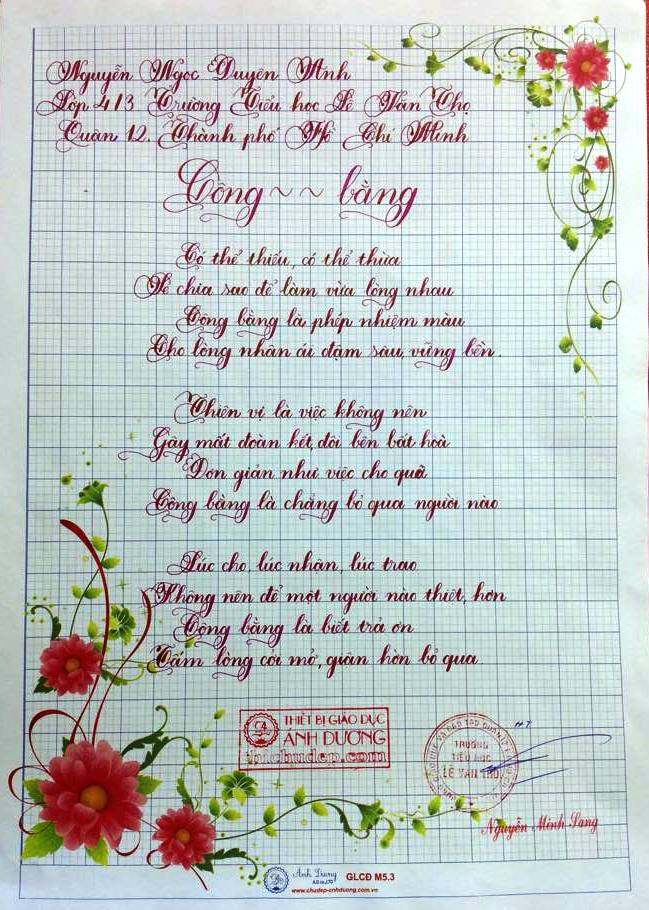 Nguyễn Ngọc Duyên Anh
Lớp 4/3 Trường Tiểu học Lê Văn Thọ
Quận 12. Thành phố Hồ Chí Minh
Công ~ ~ bằng
Có thể thiếu, có thể thừa
Sẻ chia sao để làm vừa lòng nhau
Công bằng là phép nhiệm màu
Cho lòng nhân ái đậm sâu, vững bền.
Thiên vị là việc không nên
Gây mất đoàn kết, đôi bên bất hoà
Đơn giản như việc cho quà
Công bằng là chẳng bỏ qua người nào
Lúc cho lúc nhận, lúc trao
Không nên để một người nào thiệt, hơn
Công bằng là biết trả ơn
Tấm lòng cởi mở, giận hờn bỏ qua
THIẾT BỊ GIÁO DỤC
ÁNH DƯƠNG
inchudep.com
H.T
TRƯỜNG
TIỂU HỌC
LÊ VĂN THỌ
Nguyễn Minh Sang
Ánh Dương
GLCĐ M5.3
www.chudep-anhduong.com.vn